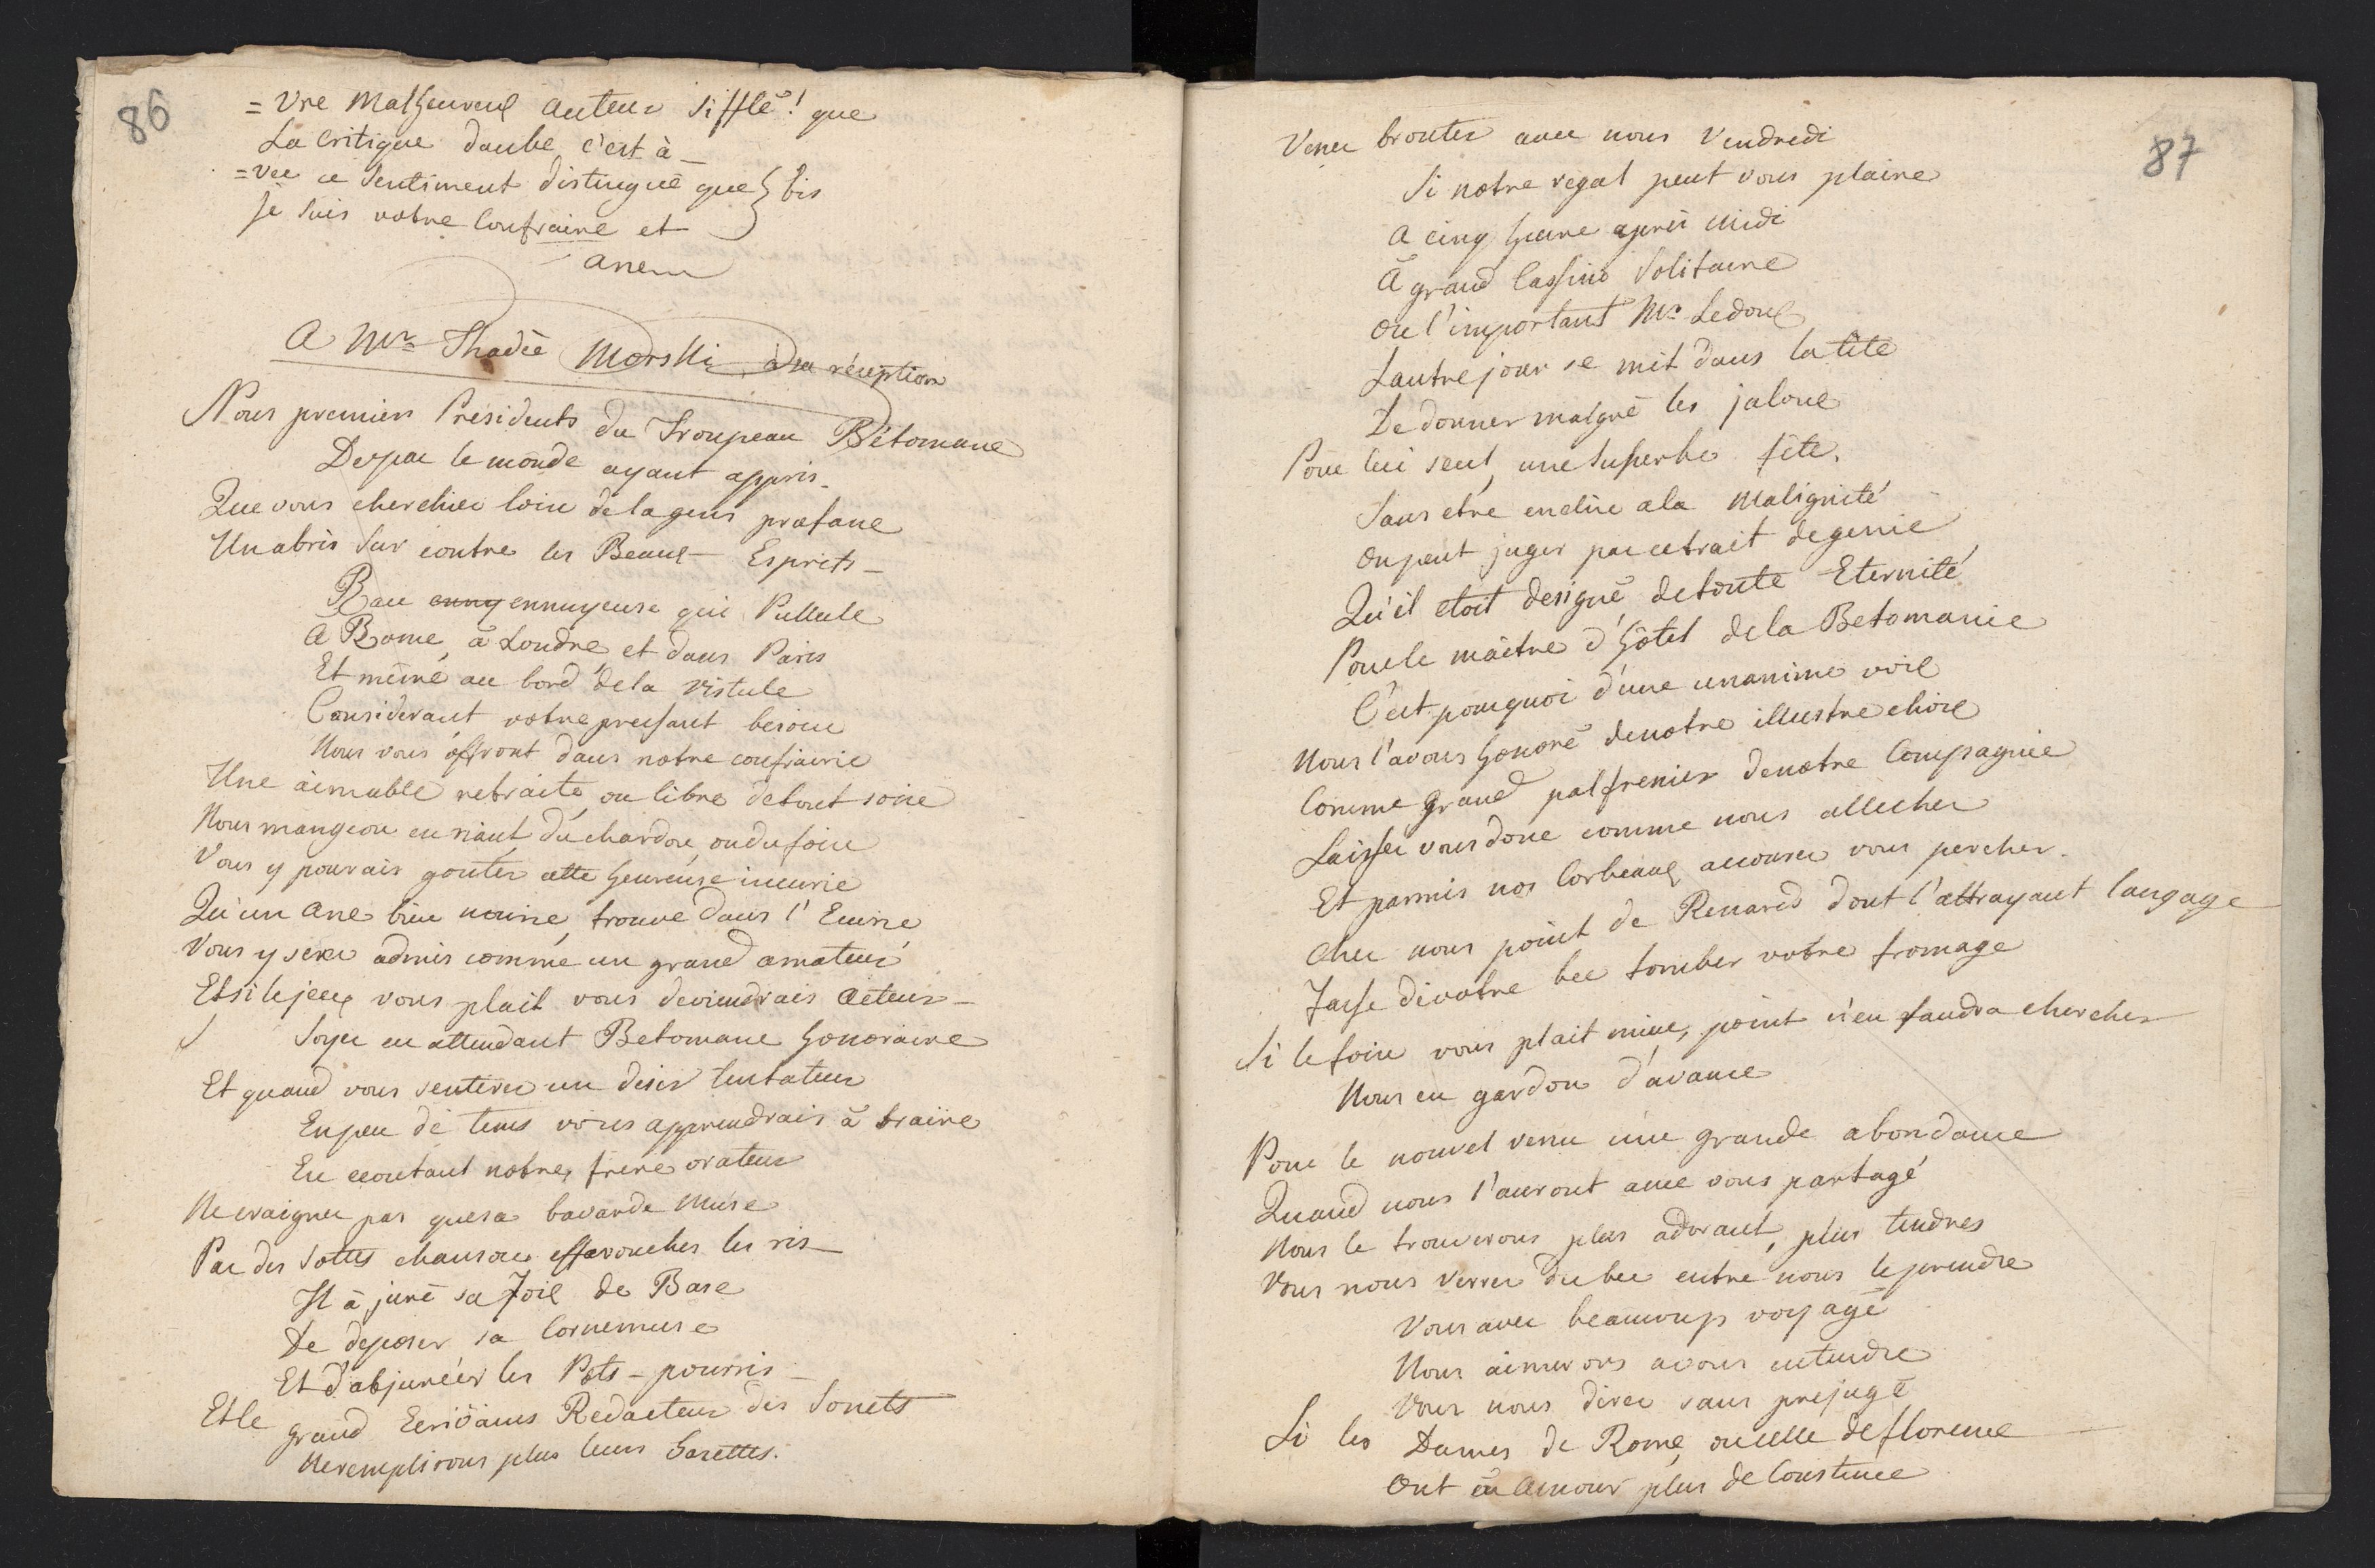 86
= Vre Malheureux auteur sifflé! que
La Critique daube c'est à _
= vec ce sentiment distingué que } bis
je suis votre Confraire et
ane
A Mr Thadée Morski, à sa réception
Nous premiers Presidents du Troupeau Bétomane
De par le monde ayant appris _
Que vous cherchiez loin de la gens profane
Un abris sur contre les Beaux-Esprits _
Race ennuyeuse qui Pullule
A Rome, à Londre, et dans Paris
Et même au bord de la Vistule
Considerant votre pressant besoin
Nous vous offront dans notre confrairie
Une aimable retraite, ou libre de tout soin
Nous mangeon en riant du chardon ou du foin
Vous y pourais gouter cette heureuse incurie
Qu'un Ane bien nourie, trouve dans l'Ecurie
Vous y serez admis comme un grand amateur
Et si le jeux vous plait vous deviendrais Acteur _
Soyez en attendant Betomane honoraire
Et quand vous sentirez un desir tentateur
En peu de tems vous apprendrais à braire
En ecoutant notre, frere orateur
Ne craignez pas que sa bavarde Muse
Par des sottes chanson effaroucher les ris _
Il à juré sa foix de Base
De deposer sa Cornemuse
Et d'abjuréér les Pots-pourris _
Et le grand Redacteur des Sonets
Ne remplirons plus leurs Gazettes.
87
Venez brouter avec nous Vendredi
Si notre regal peut vous plaire
A cinq heure après midi
A grand Cassino solitaire
Ou l'important Mr Ledoux
Lautre jour se mit dans la tête
De donner malgré les jaloux
Pour lui seul, une superbe fête.
Sans etre encline a la Malignité
On peut juger par ce trait de genie,
Qu'il etoit designé de toute Eternité
Pour le maître d'hôtel de la Betomanie
C'est pourquoi d'une unanime voix
Nous l'avons honoré de notre illustre choix
Comme grand palfrenier de notre Compagnie
Laissez vous donc comme nous allecher
Et parmis nos Corbeaux accourez vous percher.
Chez nous point de Renard dont l'attrayant langage
Fasse de votre bec tomber votre fromage
Si le foin vous plait mieux, point n'en faudra chercher
Nous en gardon d'avance
Pour le nouvel venu une grande abondance
Quand nous l'auront avec vous partagé
Nous le trouverons plus adorant, plus tendres
Vous nous verrez du bec entre nous le prendre
Vous avez beaucoup voyagé
Nous aimerons avous entendre
Vous nous direz sans prejugé
Si les Dames de Rome, ou celle de florence
Ont en Amour plus de Constence